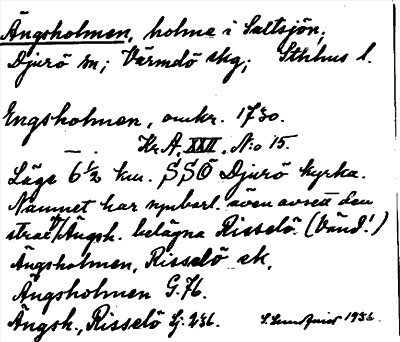 Ängsholmen, holme i Saltsjön;
Djurö sn; Värmdö skg; Sthlms l.
Engsholmen, omkr. 1730.
Kr.A. XXII. N:o 15.
Läge 6 1/2 km. SSÖ Djurö kyrka.
Namnet har synbarl. även avsett den
strax V/Ängsh. belägna Risselö. (Vänd!)
Ängsholmen, Risselö ek.
Ängsholmen G. 76.
Ängsh., Risselö Gj. 236.
1936.